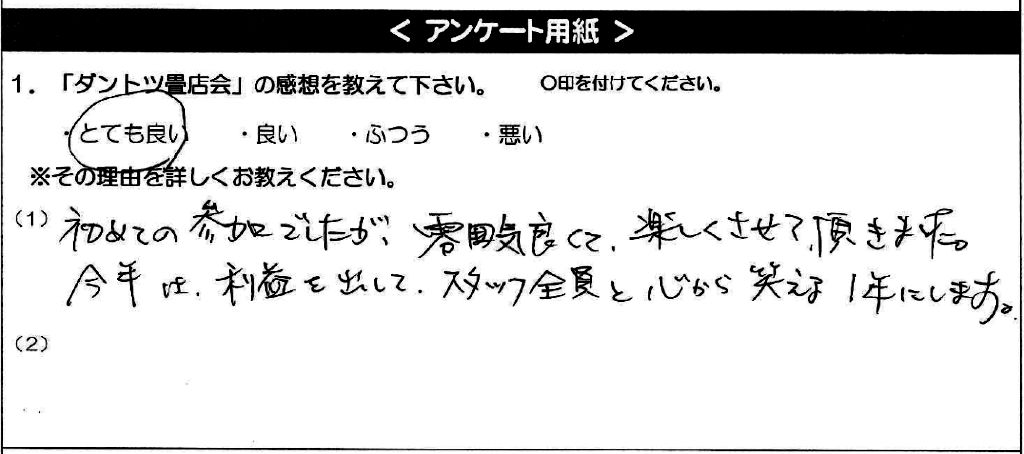 < アンケート用紙 >
1. 「ダントツ畳店会」の感想を教えて下さい。 〇印を付けてください。
・とても良い ・良い ・ふつう ・悪い
※その理由を詳しくお教えください。
(1) 初めての参加でしたが、雰囲気良くて、楽しくさせて頂きました。
今年は、利益を出して、スタッフ全員と心から笑える1年にします。
(2)